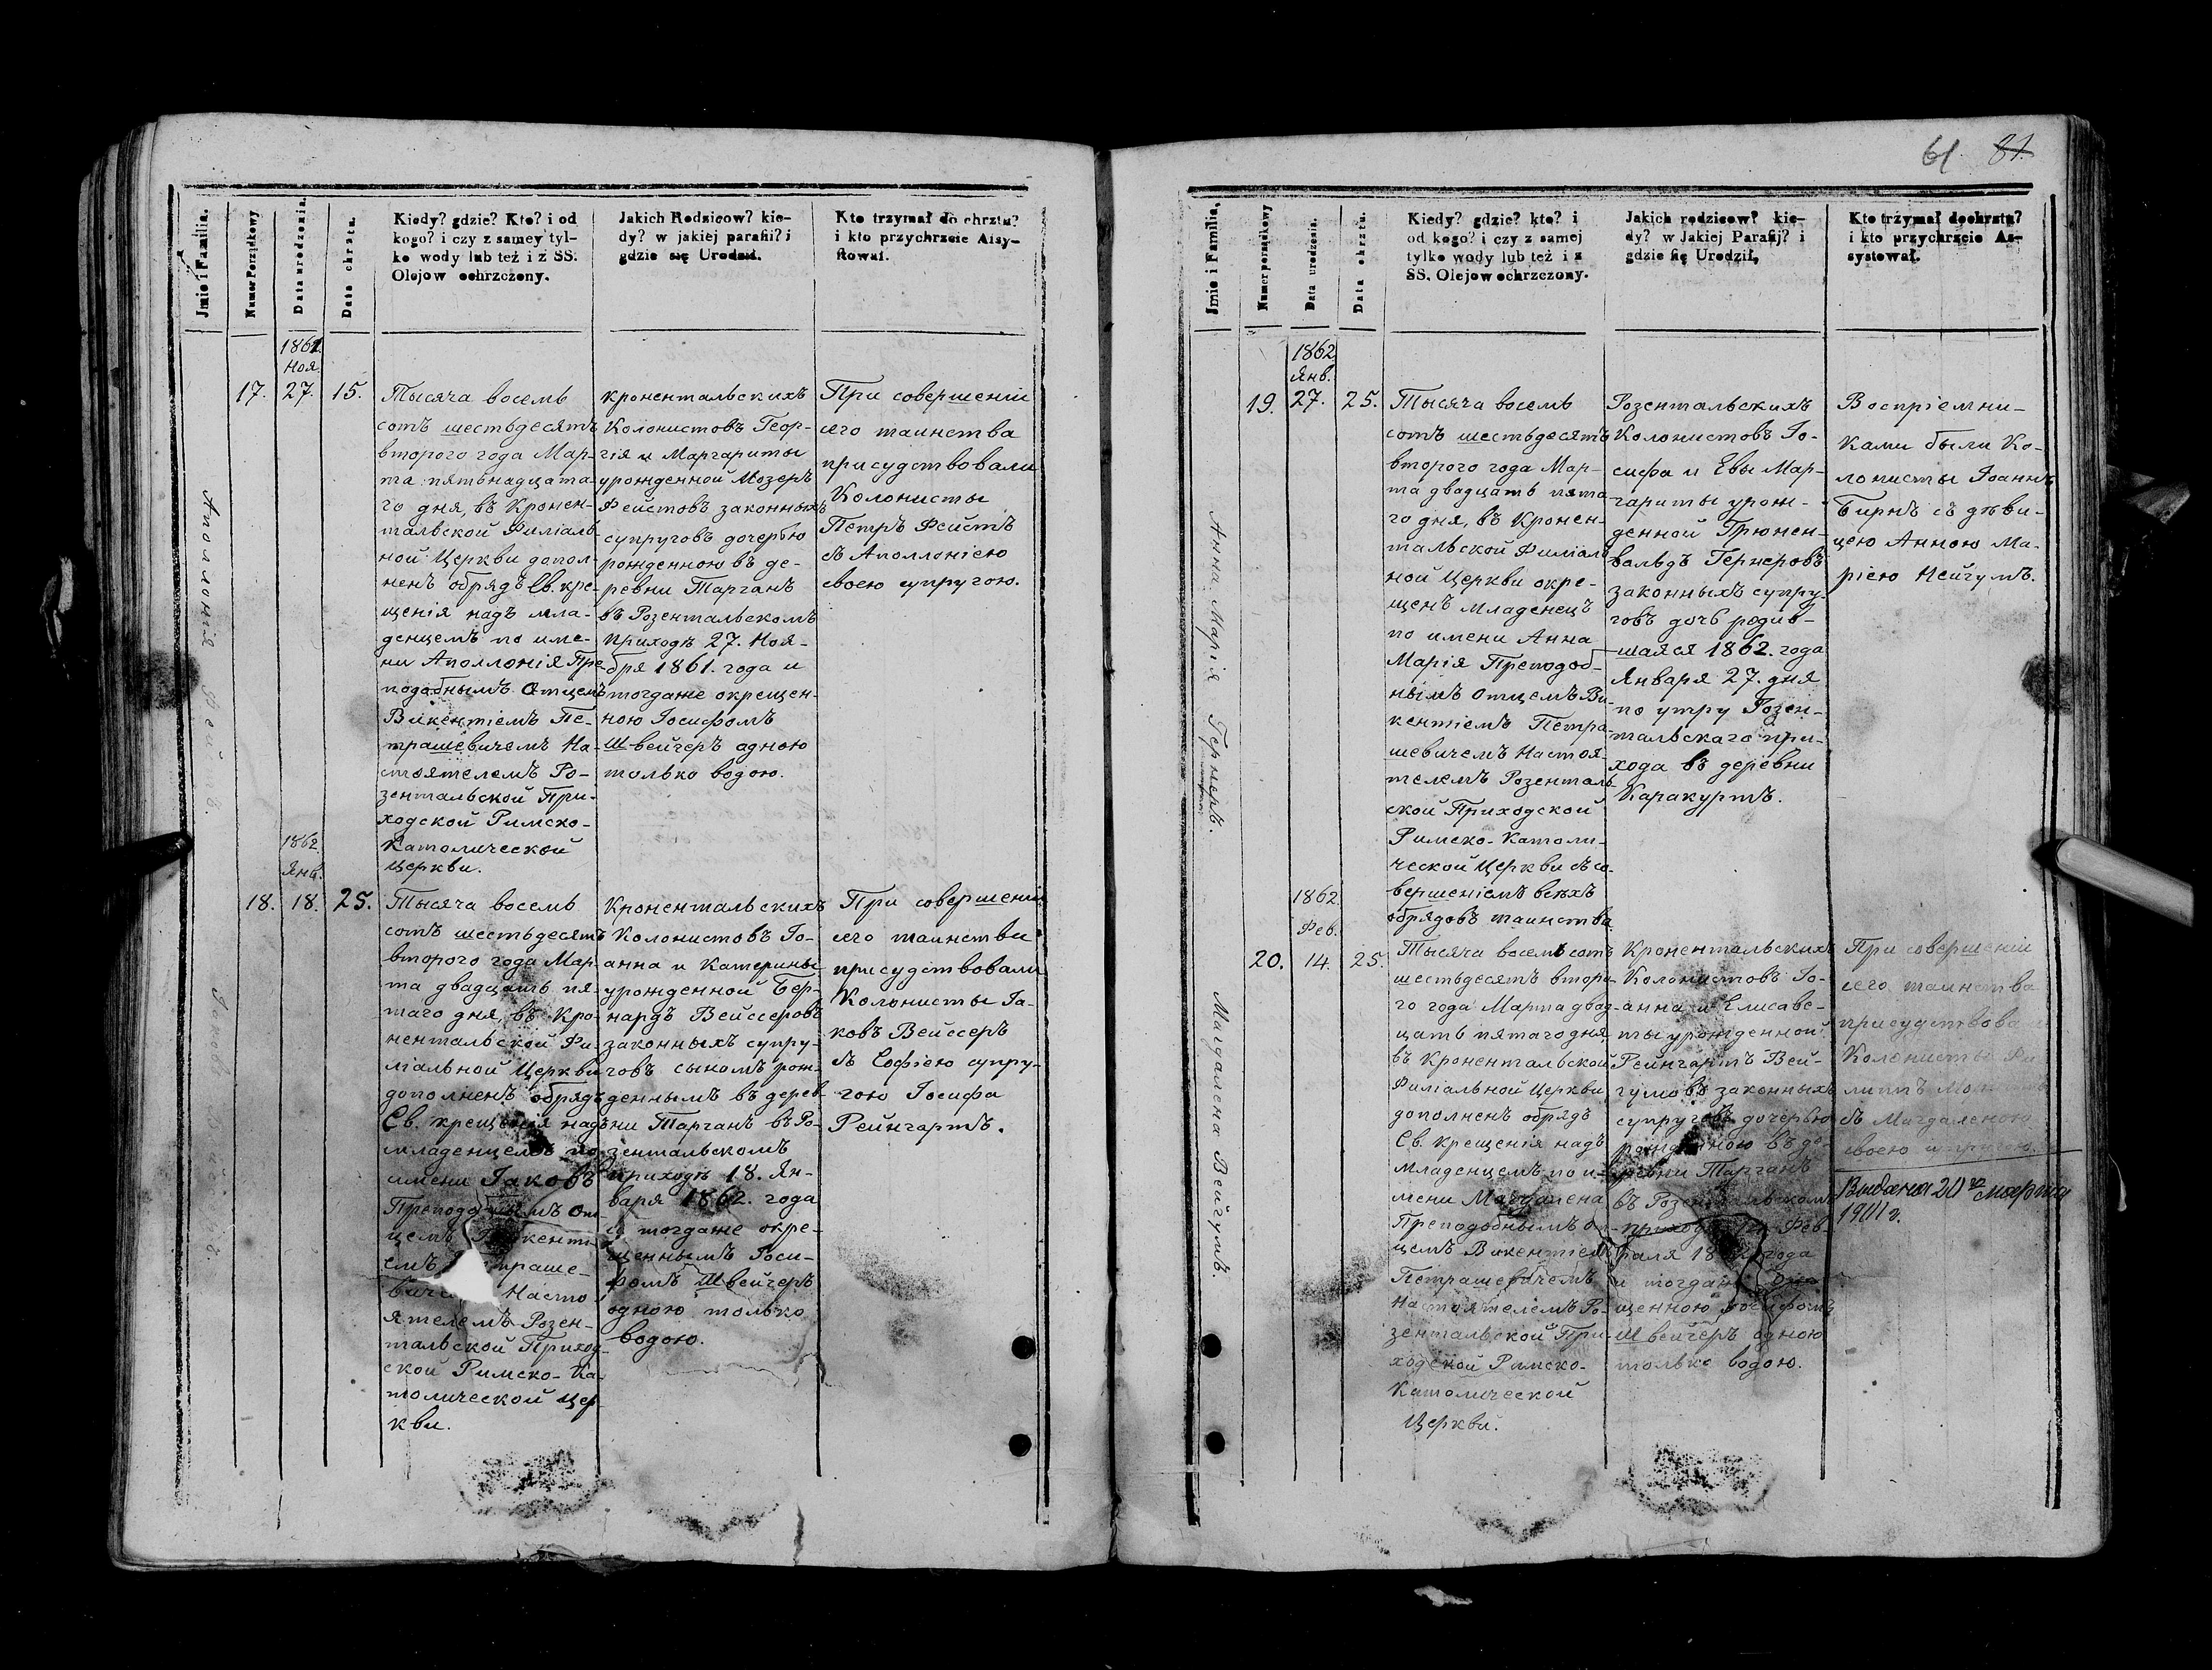 Jmie i Familia.
Numer Porządkowy
Data urodzenia.
Data chrztu.
Kiedy? gdzie? Kto? i od
kogo? i czy z samey tyl-
ko wody lub też i z SS.
Olejow ochrzczony.
Jakich Rodzicow? kie-
dy? w jakiej parafii? i
gdzie się Urodził.
Kto trzymał do chrztu?
i kto przychrzcie Assy-
stował.
Аполлонія Фейстъ.
1861.
Ноя.
17. 27. 15.
Тысяча восемь
сотъ шестьдесятъ
втораго года Мар-
та пятьнадцата-
го дня, въ Кронен-
тальской Филіаль-
ной Церкви допол-
ненъ обрядъ Св. кре-
щенія надъ мла-
денцемъ по име-
ни Аполлонія Пре-
подобнымъ Отцемъ
Викентіемъ Пе-
трашевичемъ На-
стоятелемъ Ро-
зентальской При-
ходской Римско-
Католической
Церкви.
Кронентальскихъ
Колонистовъ Геор-
гія и Маргариты
урожденной Мозеръ
Фейстовъ законныхъ
супруговъ дочерью
рожденною въ де-
ревни Тарганъ
въ Розентальскомъ
приходѣ 27. Ноя-
бря 1861. года и
тогдаже окрещен-
ною Іосифомъ
Швейчеръ одною
только водою.
При совершеніи
сего таинства
присудствовали
Колонисты
Петръ Фейстъ
съ Аполлоніею
своею супругою.
Іаковъ
1862.
Янв.
18. 18. 25.
Тысяча восемь
сотъ шестьдесятъ
втораго года Мар-
та двадцать пя-
таго дня, въ Кро-
нентальской Фи-
ліальной Церкви
дополненъ обрядъ
Св. крещенія надъ
младенцемъ по
имени Іаковъ
От-
цемъ
праше-
Насто-
ятелемъ Розен-
тальской Приход-
ской Римско-Ка-
толической Цер-
кви.
Кронентальскихъ
Колонистовъ Іо-
анна и Катерины
урожденной Бер-
нардъ Вейссеровъ
законныхъ супру-
говъ сыномъ рож-
деннымъ въ дерев-
ни Тарганъ въ Ро-
зентальскомъ
приходѣ 18. Ян-
варя 1862. года
и тогдаже окре-
щеннымъ Іоси-
фомъ Швейчеръ
одною только
водою.
При совершеніи
сего таинства
присудствовали
Колонисты Іа-
ковъ Вейссеръ
съ Софіею супру-
гою Іосифа
Рейнгартъ.
61. 81.
Jmie i Familia.
Numer porządkowy
Data urodzenia.
Data chrztu.
Kiedy? gdzie? kto? i
od kogo? i czy z samej
tylko wody lub też i z
SS. Olejow ochrzczony.
Jakich rodzicow? kie-
dy? w Jakiej Parafij? i
gdzie się Urodził,
Kto trzymał dochrztu?
i kto przychrzcie As-
systował.
Анна Марія Гернеръ.
1862
Янв.
19. 27. 25.
Тысяча восемь
сотъ шестьдесятъ
втораго года Мар-
та двадцать пята-
го дня, въ Кронен-
тальской Филіаль-
ной Церкви окре-
щенъ младенецъ
по имени Анна
Марія Преподоб-
нымъ Отцемъ Ви-
кентіемъ Петра-
шевичемъ Настоя-
телемъ Розенталь-
ской Приходской
Римско-Католи-
ческой Церкви съ со-
вершеніемъ всѣхъ
обрядовъ таинства.
Розентальскихъ
Колонистовъ Іо-
сифа и Евы Мар-
гариты урож-
денной Грюнен-
вальдъ Гернеровъ
законныхъ супру-
говъ дочь родив-
шаяся 1862. года
Января 27. дня
по утру Розен-
тальскаго при-
хода въ деревни
Каракуртъ.
Воспріемни-
ками были Ко-
лонисты Іоаннъ
Бирнъ съ дѣви-
цею Анною Ма-
ріею Нейгумъ.
Магдалена Вейгумъ.
1862
Фев.
20. 14. 25.
Тысяча восемь сотъ
шестьдесятъ второ-
го года Марта двад-
цать пятаго дня,
въ Кронентальской
Филіальной Церкви
дополненъ обрядъ
Св. Крещенія надъ
младенцемъ по и-
мени Магдалена
Преподобнымъ О-
цемъ Викентіемъ
Петрашевичемъ
Настоятелемъ Ро-
зентальской При-
ходской Римско-
Католической
Церкви.
Кронентальскихъ
Колонистовъ Іо-
анна и Елисаве-
ты урожденной
Рейнгартъ Вей-
гумовъ законныхъ
супруговъ дочерью
рожденною въ де-
ревни Тарганъ
въ Розентальскомъ
приходѣ 14. Фев-
раля 1862 года
и тогдаже
щенною Іосифомъ
Швейчеръ одною
только водою.
При совершеніи
сего таинства
присудствовали
Колонисты Фи-
липпъ
съ Магдаленою
своею супругою.
Выдана 20го марта
1901 г.